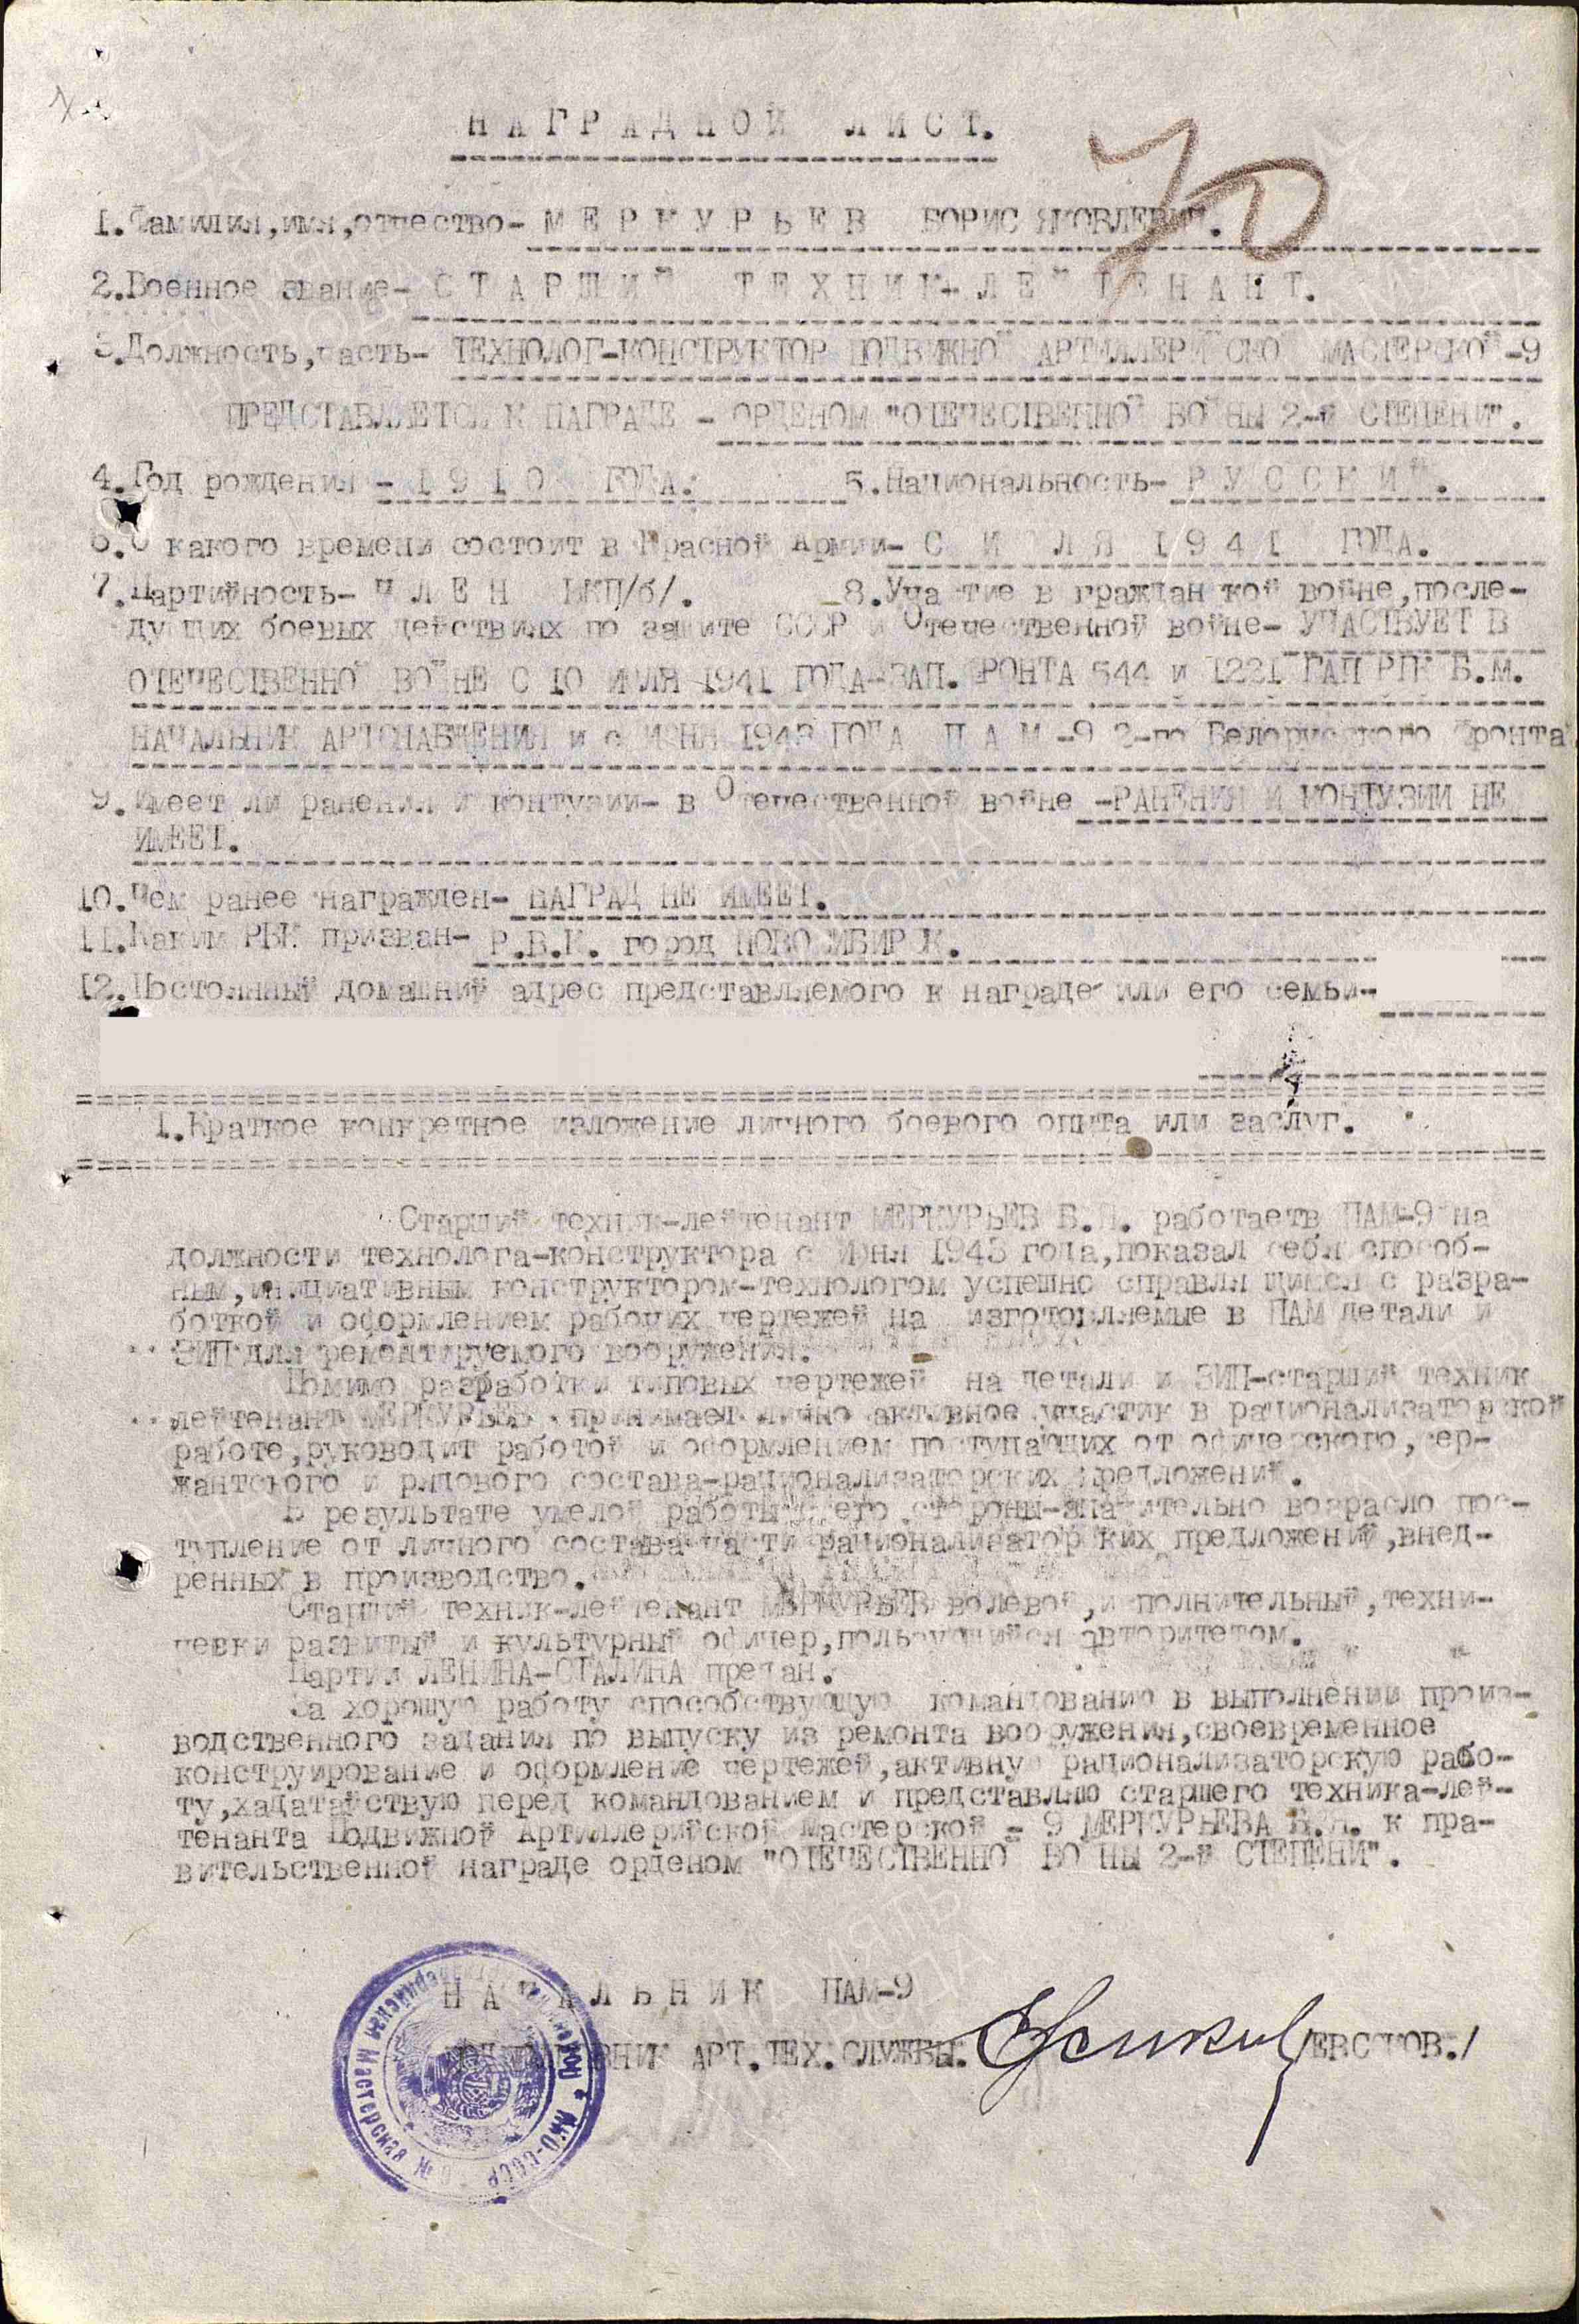 70
НАГРАДНОЙ ЛИСТ.
1.Фамилия,имя,отчество- МЕРКУРЬЕВ БОРИС ЯКОВЛЕВИЧ.
2.Военное звание- СТАРШИЙ ТЕХНИК-ЛЕЙТЕНАНТ.
3.Должность,часть- ТЕХНОЛОГ-КОНСТРУКТОР ПОДВИЖНОЙ АРТИЛЛЕРИЙСКОЙ МАСТЕРСКОЙ-9
ПРЕДСТАВЛЯЕТСЯ К НАГРАДЕ - ОРДЕНОМ "ОТЕЧЕСТВЕННОЙ ВОЙНЫ 2-й СТЕПЕНИ".
4.Год рождения - 1910 ГОДА. 5.Национальность- РУССКИЙ.
6.С какого времени состоит в Красной Армии- С ИЮЛЯ 1941 ГОДА.
7.Партийность- ЧЛЕН ВКП/б/. 8.Участие в гражданской войне,после-
дующих боевых действиях по защите СССР и Отечественной войне- УЧАСТВУЕТ В
ОТЕЧЕСТВЕННОЙ ВОЙНЕ С 10 ИЮЛЯ 1941 ГОДА-ЗАП. ФРОНТА 544 и 1221 ГАП РГК Б.М.
НАЧАЛЬНИК АРТСНАБЖЕНИЯ и с ИЮНЯ 1943 ГОДА ПАМ-9 2-го Белорусского Фронта
9.Имеет ли ранения и контузии- в Отечественной войне -РАНЕНИЯ И КОНТУЗИИ НЕ
ИМЕЕТ.
10.Чем ранее награжден- НАГРАД НЕ ИМЕЕТ.
11.Каким РВК призван- Р.В.К. город НОВОСИБИРСК.
12.Постоянный домашний адрес представляемого к награде или его семьи-
1.Краткое конкретное изложение личного боевого опыта или заслуг.
Старший техник-лейтенант МЕРКУРЬЕВ Б.Я. работаетв ПАМ-9 на
должности технолога-конструктора с июня 1943 года,показал себя способ-
ным,инициативным конструктором-технологом успешно справляющимся с разра-
боткой и оформлением рабочих чертежей на изготовляемые в ПАМ детали и
ЗИП для ремонтируемого вооружения.
Помимо разработки типовых чертежей на детали и ЗИП-старший техник
лейтенант МЕРКУРЬЕВ принимает лично активное участик в рационализаторской
работе,руководит работой и оформлением поступающих от офицерского,сер-
жантского и рядового состава-рационализаторских предложений.
В результате умелой работы с его стороны-значительно возрасло пос-
тупление от личного состава части рационализаторских предложений,внед-
ренных в производство.
Старший техник-лейтенант МЕРКУРЬЕВ волевой,исполнительный,техни-
чески развитый и культурный офицер,пользующийся авторитетом.
Партии ЛЕНИНА-СТАЛИНА предан.
За хорошую работу способствующую командованию в выполнении произ-
водственного задания по выпуску из ремонта вооружения,своевременное
конструирование и оформление чертежей,активную рационализаторскую рабо-
ту,хадатайствую перед командованием и представляю старшего техника-лей-
тенанта Подвижной Артиллерийской Мастерской - 9 МЕРКУРЬЕВА Б.Я. к пра-
вительственной награде орденом "ОТЕЧЕСТВЕННОЙ ВОЙНЫ 2-й СТЕПЕНИ".
НАЧАЛЬНИК ПАМ-9
АРТ.ТЕХ.СЛУЖБЫ. /ЕВСИКОВ./
Артиллерийская Мастерская № НКО-СССР